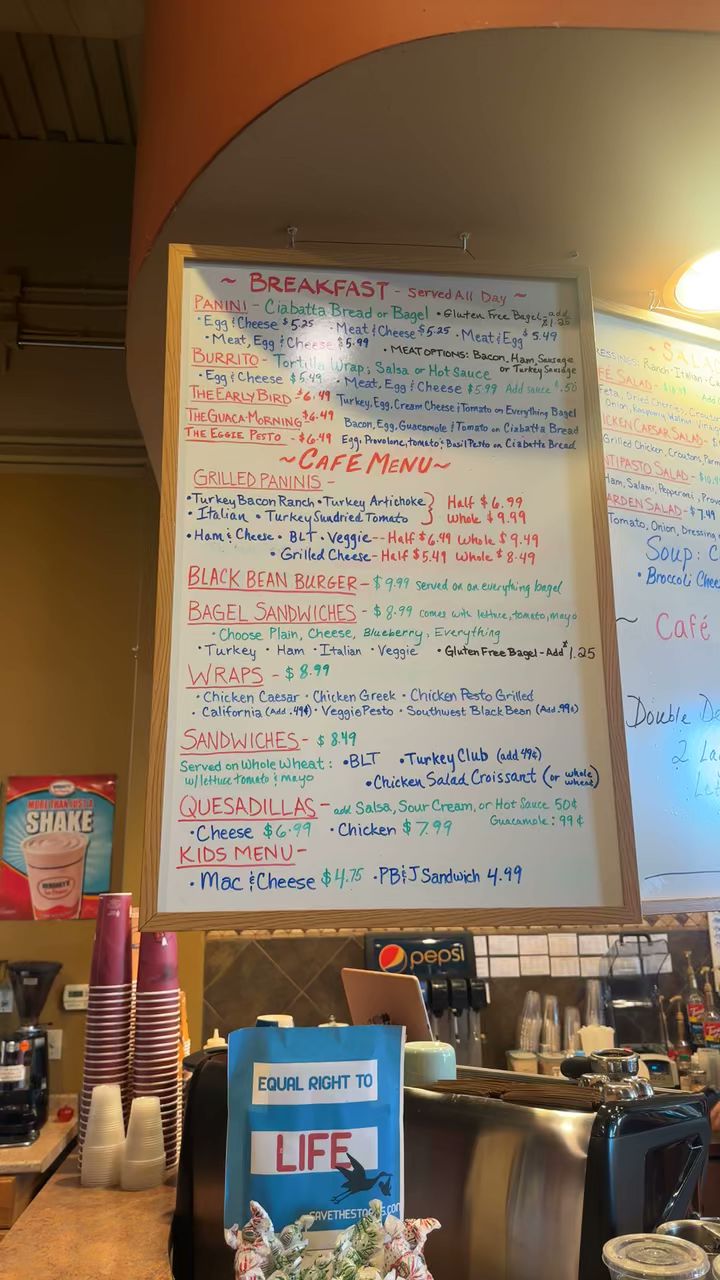 ~ BREAKFAST - Served All Day ~
PANINI - Ciabatta Bread or Bagel • Gluten Free Bagel - add $1.25
• Egg & Cheese $5.25 • Meat & Cheese $5.25 • Meat & Egg $5.49
• Meat, Egg & Cheese $5.99 • MEAT OPTIONS: Bacon, Ham, Sausage
or Turkey Sausage
BURRITO - Tortilla Wrap; Salsa or Hot Sauce
• Egg & Cheese $5.49 • Meat, Egg & Cheese $5.99 Add sauce $.50
THE EARLY BIRD - $6.49 Turkey, Egg, Cream Cheese & Tomato on Everything Bagel
THE GUACA-MORNING $6.49 Bacon, Egg, Guacamole & Tomato on Ciabatta Bread
THE EGGIE PESTO - $6.49 Egg, Provolone, tomato & Basil Pesto on Ciabatta Bread
~ CAFE MENU ~
GRILLED PANINIS -
• Turkey Bacon Ranch • Turkey Artichoke } Half $6.99
• Italian • Turkey Sundried Tomato } Whole $9.99
• Ham & Cheese • BLT • Veggie -- Half $6.49 Whole $9.49
• Grilled Cheese - Half $5.49 Whole $8.49
BLACK BEAN BURGER - $9.99 served on an everything bagel
BAGEL SANDWICHES - $8.99 comes with lettuce, tomato, mayo
• Choose Plain, Cheese, Blueberry, Everything
• Turkey • Ham • Italian • Veggie • Gluten Free Bagel - Add $1.25
WRAPS - $8.99
• Chicken Caesar • Chicken Greek • Chicken Pesto Grilled
• California (Add .49¢) • Veggie Pesto • Southwest Black Bean (Add .99¢)
SANDWICHES - $8.49
Served on Whole Wheat: • BLT • Turkey Club (add 49¢)
w/ lettuce tomato & mayo • Chicken Salad Croissant (or whole wheat)
QUESADILLAS - add Salsa, Sour Cream, or Hot Sauce 50¢
• Cheese $6.99 • Chicken $7.99 Guacamole: 99¢
KIDS MENU -
• Mac & Cheese $4.75 • PB & J Sandwich 4.99
~ SALA
ESSINGS: Ranch • Italian • Ca
FÉ SALAD -
Feta, Dried Cherries, Crouto
Onion, Raspberry Walnut
ICKEN CAESAR SALAD -
Grilled Chicken, Croutons, Parm
NTIPASTO SALAD -
Ham, Salami, Pepperoni, Provo
ARDEN SALAD - $7.49
Tomato, Onion, Dressing
Soup: C
• Broccoli Chee
~ Café
Double De
2 La
MORE THAN JUST A
SHAKE
HERSHEY'S
pepsi
EQUAL RIGHT TO
LIFE
SAVETHESTORKS.COM